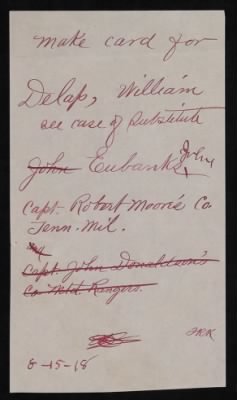 make card for
Delap, William
see case of substitute
John Eubanks, John
Capt. Robert Moore's Co
Tenn. Mil.
Capt. John Donaldson's
Co Mtd. Rangers.
HRK
8-15-18